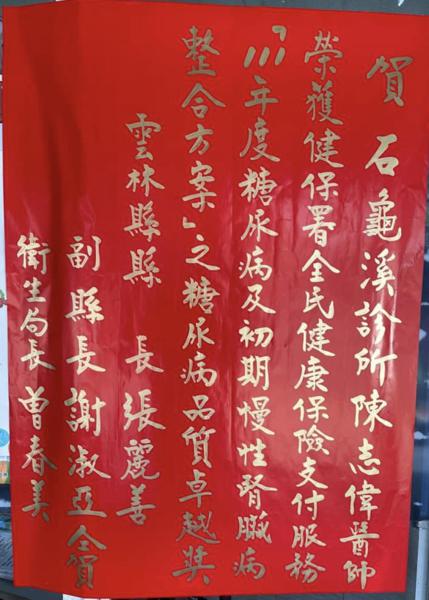 賀 石龜溪診所陳志偉醫師
榮獲健保署全民健康保險支付服務
「111年度糖尿病及初期慢性腎臟病
整合方案」之糖尿病品質卓越獎
雲林縣縣 長張麗善
副縣長謝淑亞仝賀
衛生局長曾春美